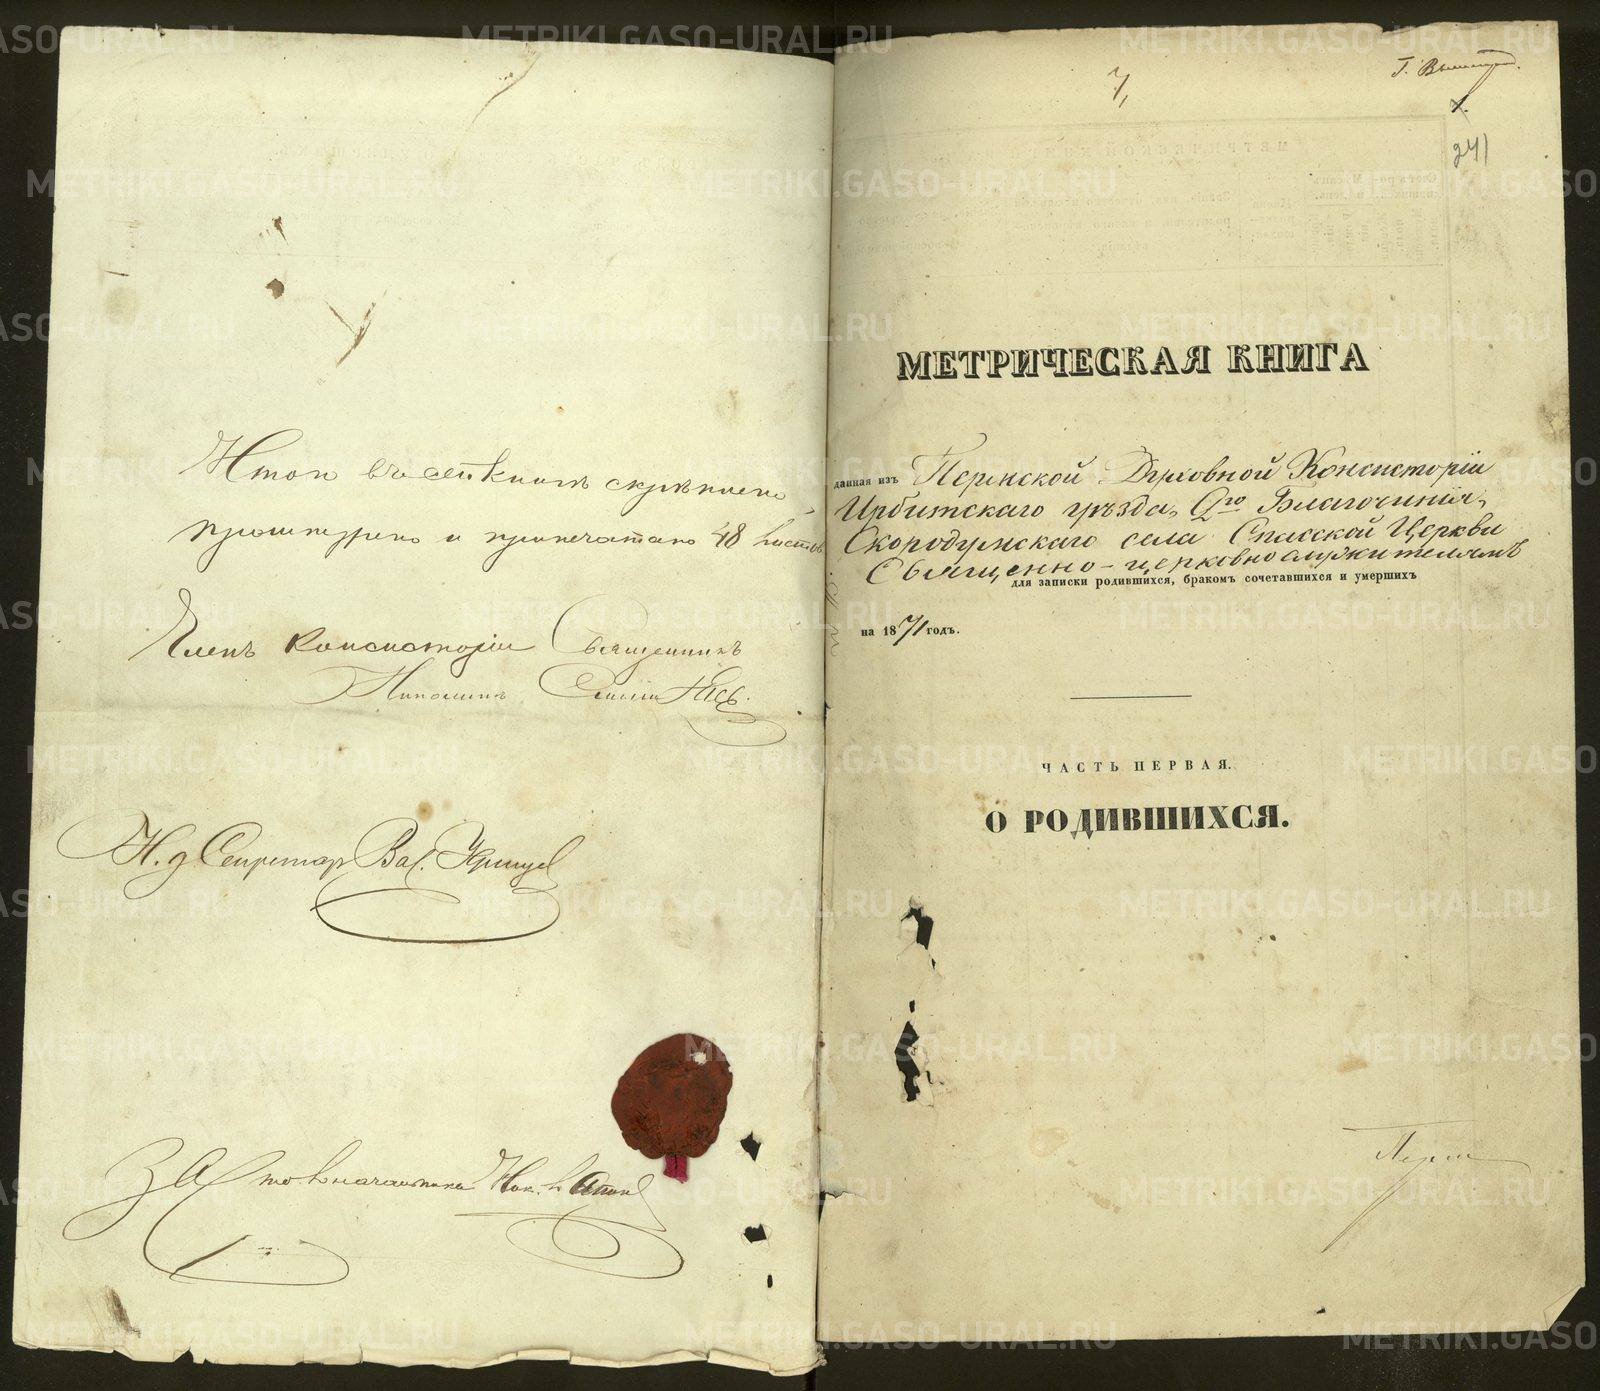 Итого въ сей книгѣ скрѣплено
прошнуровано и припечатано 48 листовъ
Членъ Консисторіи Священникъ
И. д. Секретаря Вас.
За Столоначальника
7,
241
МЕТРИЧЕСКАЯ КНИГА
данная изъ Пермской Духовной Консисторіи
Ирбитскаго уѣзда, 2го Благочинія,
Скородумскаго села Спасской Церкви
Священно-церковнослужителямъ
для записки родившихся, бракомъ сочетавшихся и умершихъ
на 1871 годъ.
ЧАСТЬ ПЕРВАЯ.
О РОДИВШИХСЯ.
METRIKI.GASO-URAL.RU